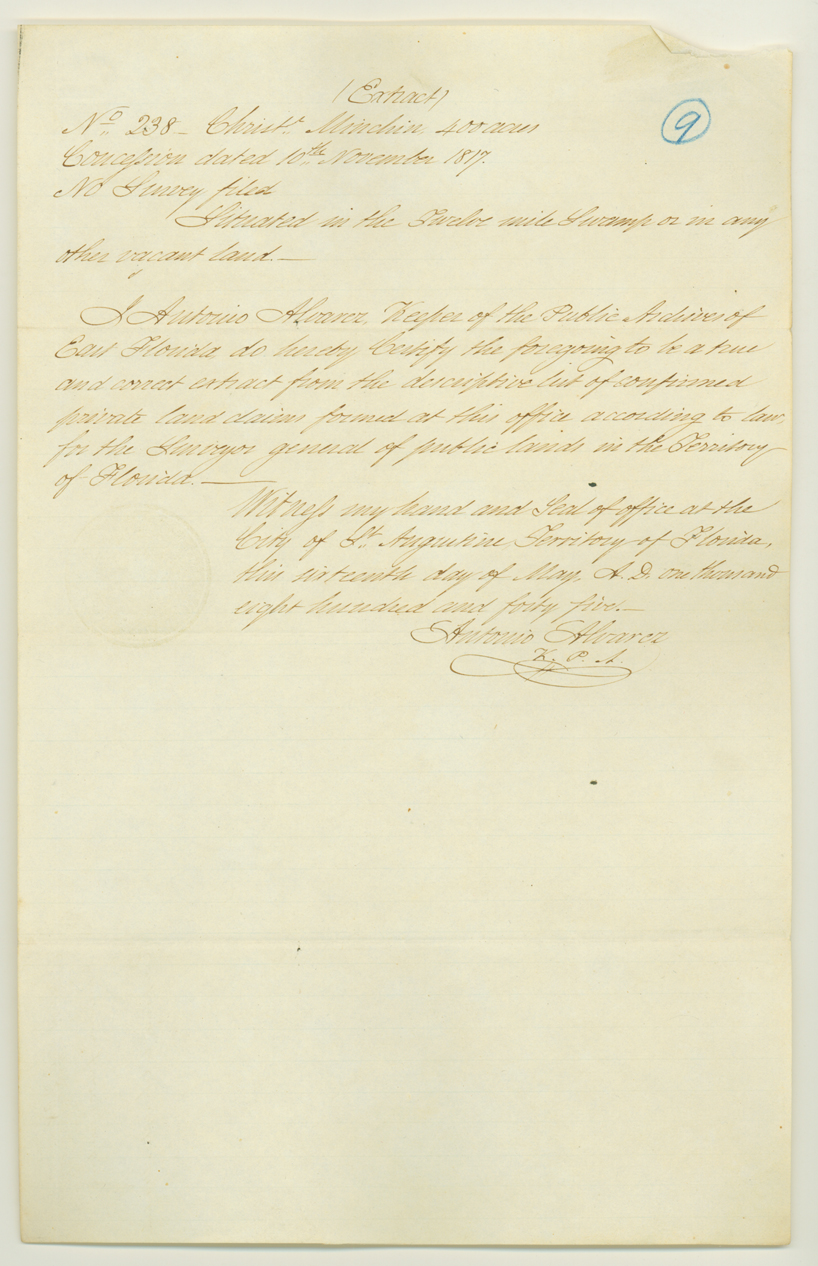 (Extract)
9
No. 238 - Christr. Minchin 400 acres
Concession dated 10th November 1817.
No Survey filed
Situated in the Twelve mile Swamp or in any
other vacant land. —
I Antonio Alvarez, Keeper of the Public Archives of
East Florida do hereby Certify the foregoing to be a true
and correct extract from the descriptive list of confirmed
private land claims formed at this office according to law,
for the Surveyor general of public lands in the Territory
of Florida. —
Witness my hand and Seal of office at the
City of St. Augustine, Territory of Florida,
this sixteenth day of May, A. D. one thousand
eight hundred and forty five. —
Antonio Alvarez
K. P. A.